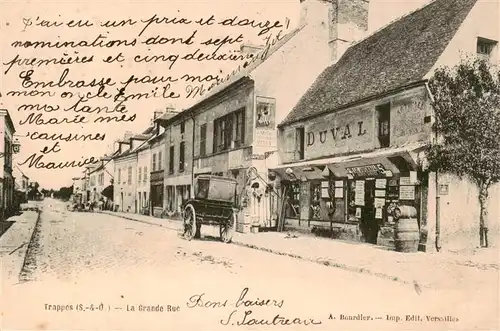 J'ai eu un prix et douze
nominations dont sept
premières et cinq deuxièmes
Embrasse pour moi
mon oncle Emile
ma tante
Marie mes
cousines
et Maurice
DUVAL
Trappes (S.-&-O.) — La Grande Rue
Bons baisers
A. Bourdier. — Imp. Edit. Versailles